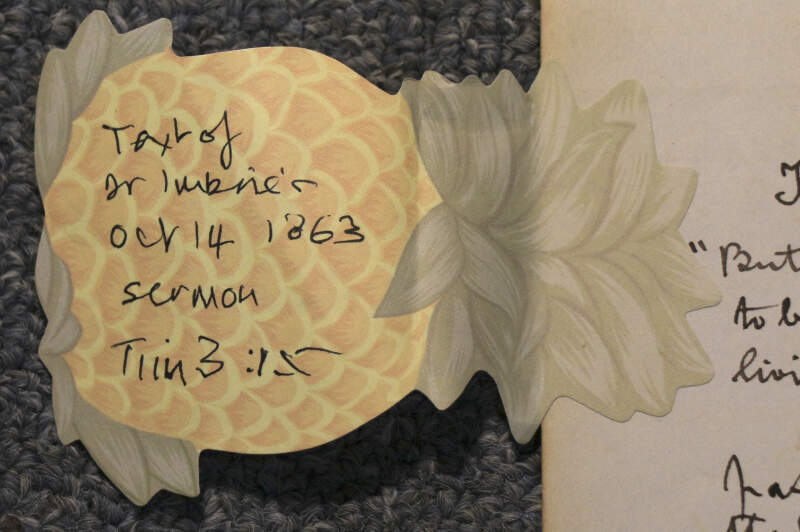 Text of
Dr Imbrie's
Oct 14 1863
sermon
Tim 3:15
"But
to b
livi